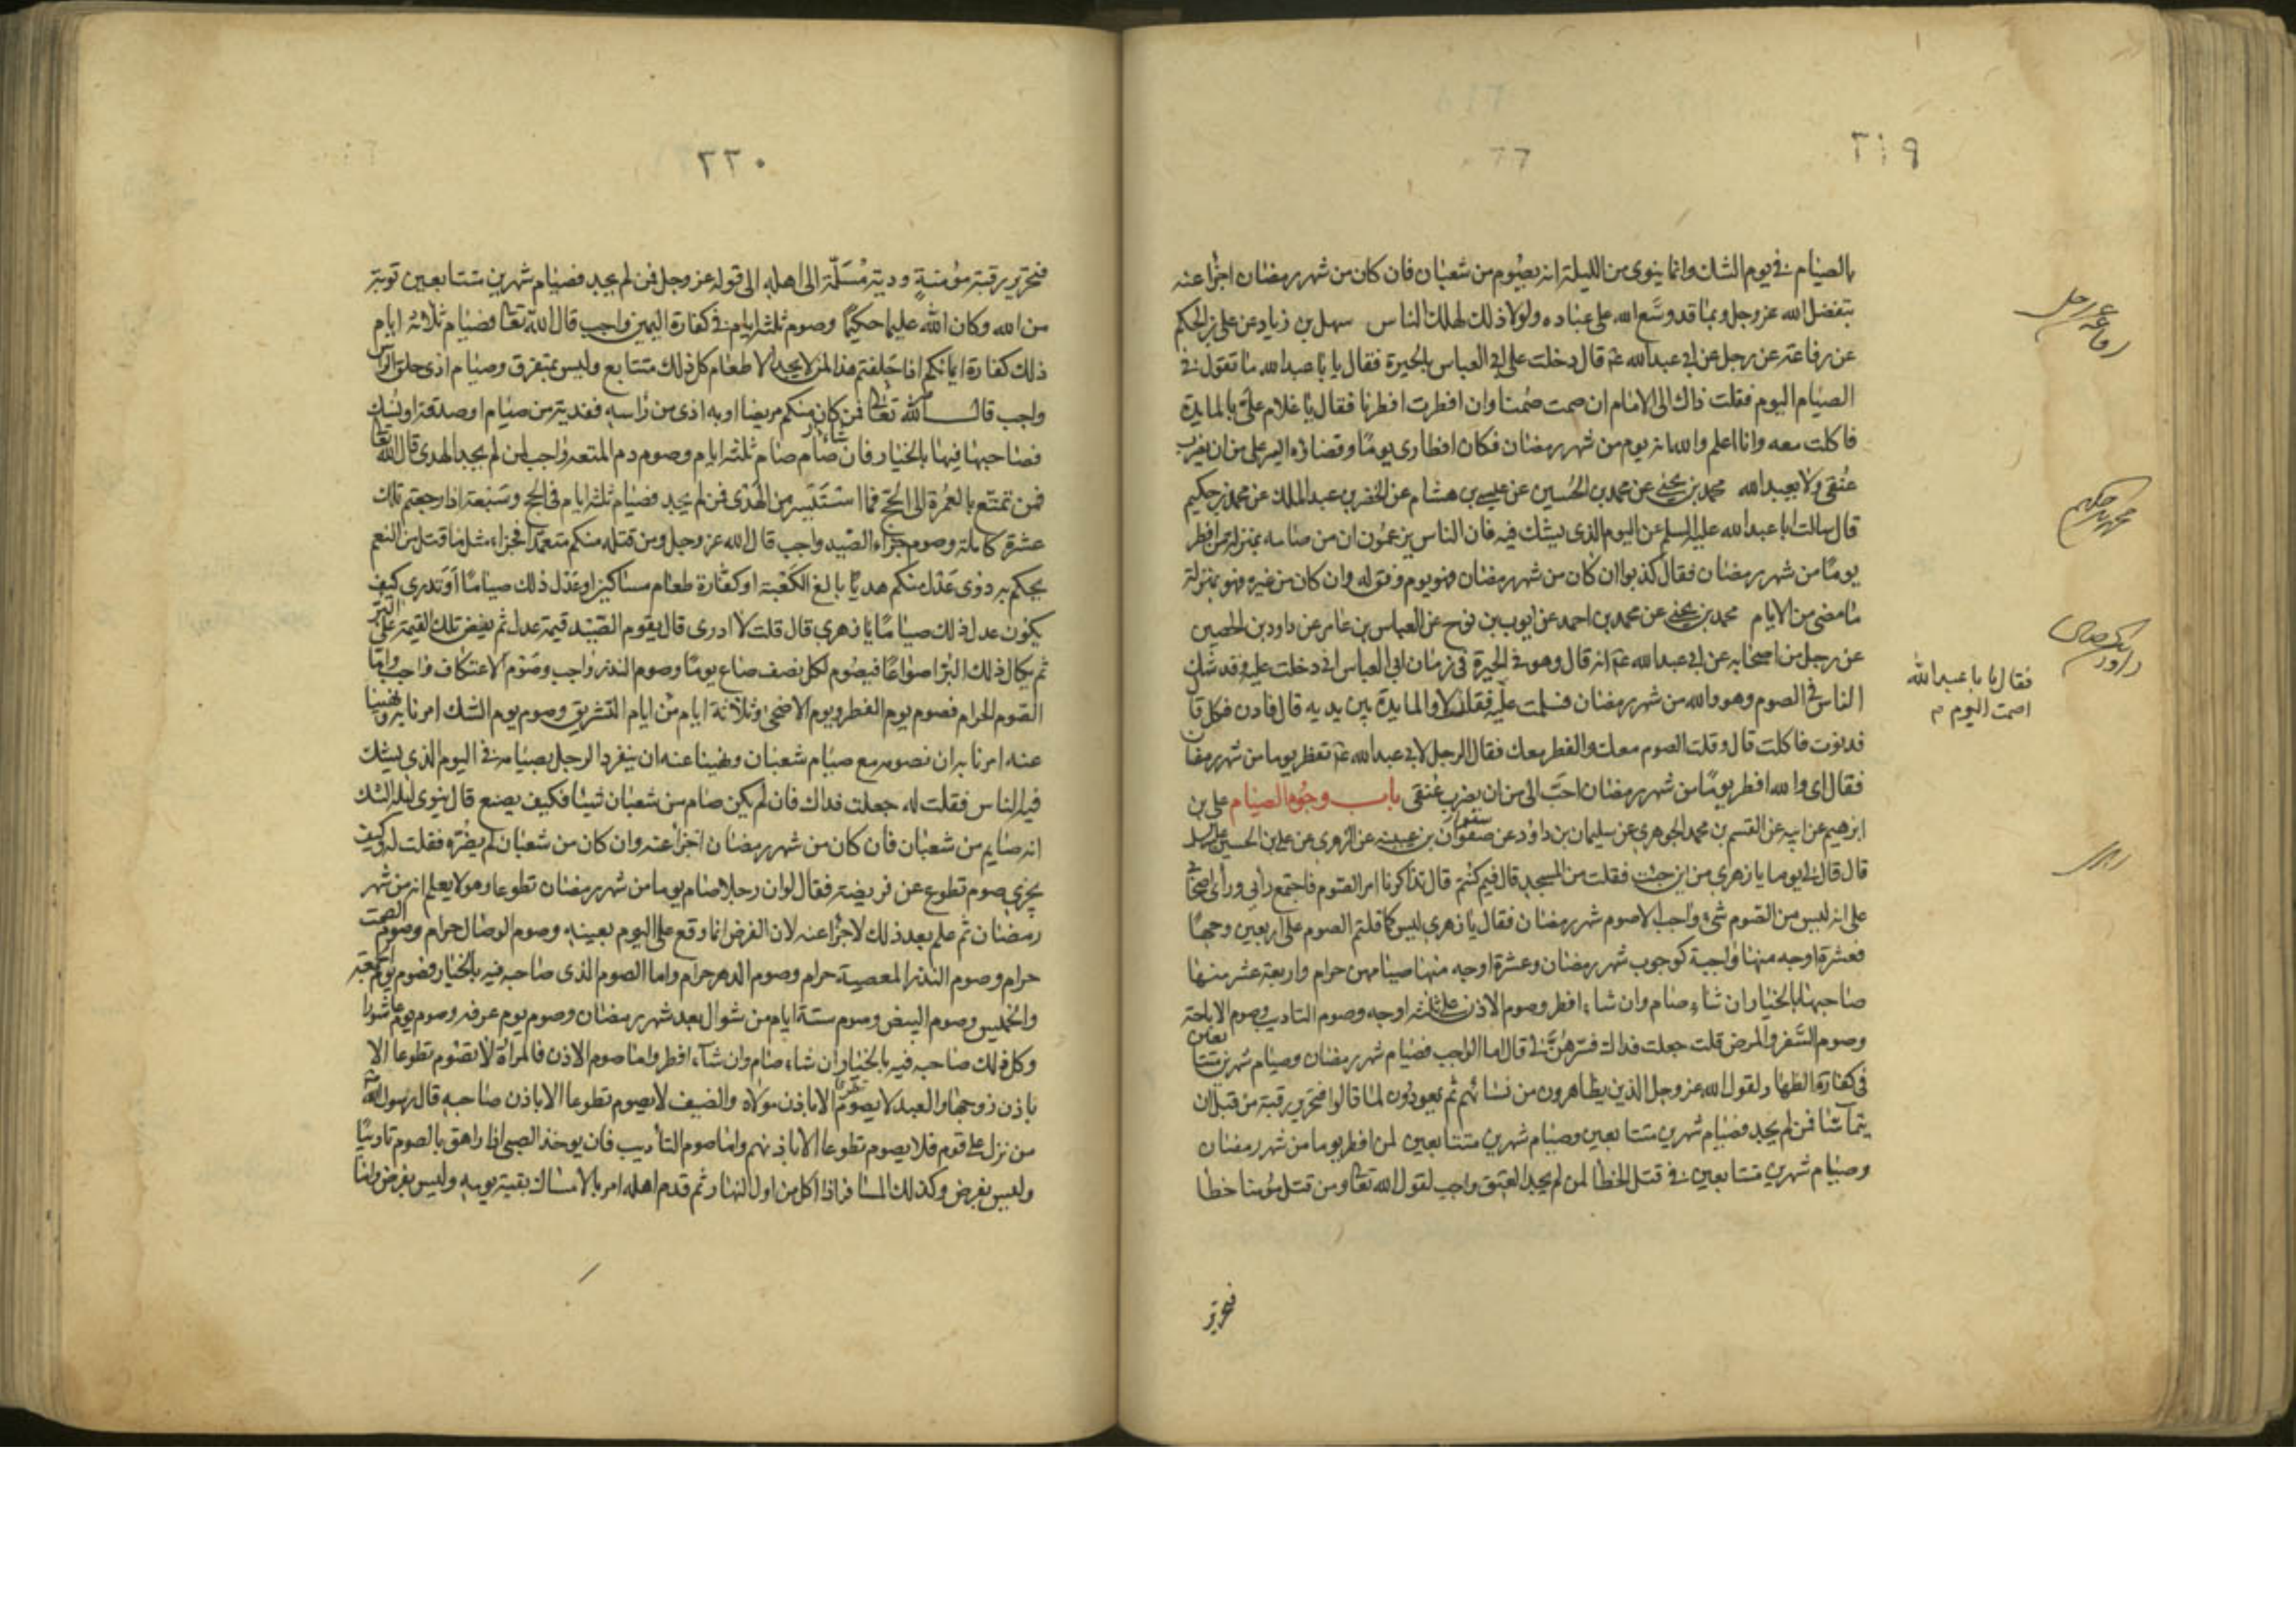 ٢١٩
بالصيام في يوم الشك وانما ينوى من الليلة انه يصوم من شعبان فان كان من شهر رمضان اجزأ عنه
بتفضل الله عز وجل وبما قد وسع الله على عباده ولولا ذلك لهلك الناس سهل بن زياد عن على بن الحكم
عن رفاعة عن رجل عن ابى عبد الله عم قال دخلت على ابى العباس بالحيرة فقال يا با عبد الله ما تقول في
الصيام اليوم فقلت ذاك الى الامام ان صمت صمنا وان افطرت افطرنا فقال يا غلام على بالمايدة
فاكلت معه وانا اعلم والله انه يوم من شهر رمضان فكان افطارى يوما وقضاؤه ايسر على من ان يضرب
عنقى ولا يعبد الله محمد بن يحيى عن محمد بن الحسين عن عيسى بن هشام عن الخضر بن عبد الملك عن محمد بن حكيم
قال سالت ابا عبد الله عليه السلم عن اليوم الذى يشك فيه فان الناس يزعمون ان من صامه بمنزلة من افطر
يوما من شهر رمضان فقال كذبوا ان كان من شهر رمضان فهو يوم وفق له وان كان من غيره فهو بمنزلة
ما مضى من الايام محمد بن يحيى عن محمد بن احمد عن ايوب بن نوح عن العباس بن عامر عن داود بن الحصين
عن رجل من اصحابه عن ابى عبد الله عم انه قال وهو في الحيرة في زمان ابى العباس انى دخلت عليه وقد شك
الناس في الصوم وهو والله من شهر رمضان فسلمت عليه فقلت لا والمايدة بين يديه قال فادن فكل قال
فدنوت فاكلت قال وقلت الصوم معك والفطر معك فقال الرجل لابى عبد الله عم تفطر يوما من شهر رمضان
فقال اى والله افطر يوما من شهر رمضان احب الى من ان يضرب عنقى باب وجوه الصيام على بن
ابرهيم عن ابيه عن القسم بن محمد الجوهرى عن سليمان بن داود عن سفيان بن عيينه عن الزهرى عن على بن الحسين عليه السلم
قال قال لى يوما يا زهرى من اين جئت فقلت من المسجد قال فيم كنتم قال تذاكرنا امر الصوم فاجتمع رأيى ورأى اصحابى
على انه ليس من الصوم شىء واجب الا صوم شهر رمضان فقال يا زهرى ليس كما قلتم الصوم على اربعين وجها
فعشرة اوجه منها واجبة كوجوب شهر رمضان وعشرة اوجه منها صيامهن حرام واربعة عشر منها
صاحبها بالخيار ان شاء صام وان شاء افطر وصوم الاذن على ثلثة اوجه وصوم التاديب وصوم الاباحة
وصوم السفر والمرض قلت جعلت فداك فسرهن لى قال اما الواجب فصيام شهر رمضان وصيام شهرين متتابعين
في كفارة الظهار لقول الله عز وجل الذين يظاهرون من نسائهم ثم يعودون لما قالوا فتحرير رقبة من قبل ان
يتماسا فمن لم يجد فصيام شهرين متتابعين وصيام شهرين متتابعين لمن افطر يوما من شهر رمضان
وصيام شهرين متتابعين في قتل الخطا لمن لم يجد العتق واجب لقول الله تعالى ومن قتل مؤمنا خطا
فتحرير
رفاعة عن رجل
محمد بن حكيم
فقال يا با عبد الله
اصمت اليوم
٢٢٠
فتحرير رقبة مؤمنة ودية مسلمة الى اهله الى قوله عز وجل فمن لم يجد فصيام شهرين متتابعين توبة
من الله وكان الله عليما حكيما وصوم ثلثة ايام في كفارة اليمين واجب قال الله تعالى فصيام ثلاثة ايام
ذلك كفارة ايمانكم اذا حلفتم هذا لمن لا يجد الاطعام كل ذلك متتابع وليس بمتفرق وصيام اذى حلق الراس
واجب قال الله تعالى فمن كان منكم مريضا او به اذى من راسه ففدية من صيام او صدقة او نسك
فصاحبها فيها بالخيار فان شاء صام صام ثلثة ايام وصوم دم المتعة واجب لمن لم يجد الهدى قال الله تعالى
فمن تمتع بالعمرة الى الحج فما استيسر من الهدى فمن لم يجد فصيام ثلثة ايام في الحج وسبعة اذا رجعتم تلك
عشرة كاملة وصوم جزاء الصيد واجب قال الله عز وجل ومن قتله منكم متعمدا فجزاء مثل ما قتل من النعم
يحكم به ذوى عدل منكم هديا بالغ الكعبة او كفارة طعام مساكين او عدل ذلك صياما اوتدرى كيف
يكون عدل ذلك صياما يا زهرى قال قلت لا ادرى قال يقوم الصيد قيمة عدل ثم يفض تلك القيمة على البر
ثم يكال ذلك البر اصواعا فيصوم لكل نصف صاع يوما وصوم النذر واجب وصوم الاعتكاف واجب واما
الصوم الحرام فصوم يوم الفطر ويوم الاضحى وثلاثة ايام من ايام التشريق وصوم يوم الشك امرنا به ونهينا
عنه امرنا به ان نصومه مع صيام شعبان ونهينا عنه ان ينفرد الرجل بصيامه في اليوم الذى يشك
فيه الناس فقلت له جعلت فداك فان لم يكن صام من شعبان شيئا فكيف يصنع قال ينوى ليلة الشك
انه صايم من شعبان فان كان من شهر رمضان اجزأ عنه وان كان من شعبان لم يضره فقلت له وكيف
يجزى صوم تطوع عن فريضة فقال لو ان رجلا صام يوما من شهر رمضان تطوعا وهو لا يعلم انه من شهر
رمضان ثم علم بعد ذلك لاجزأ عنه لان الفرض انما وقع على اليوم بعينه وصوم الوصال حرام وصوم الصمت
حرام وصوم النذر المعصية حرام وصوم الدهر حرام واما الصوم الذى صاحبه فيه بالخيار فصوم يوم الجمعة
والخميس وصوم البيض وصوم ستة ايام من شوال بعد شهر رمضان وصوم يوم عرفه وصوم يوم عاشورا
وكل ذلك صاحبه فيه بالخيار ان شاء صام وان شآء افطر واما صوم الاذن فالمراة لا تصوم تطوعا الا
باذن زوجها والعبد لا يصوم تطوعا الا باذن مولاه والضيف لا يصوم تطوعا الا باذن صاحبه قال رسول الله
من نزل على قوم فلا يصوم تطوعا الا باذنهم واما صوم التأديب فان يوخذ الصبى اذا راهق بالصوم تاديبا
وليس بفرض وكذلك المسافر اذا اكل من اول النهار ثم قدم اهله امر بالامساك بقية يومه وليس بفرض واما